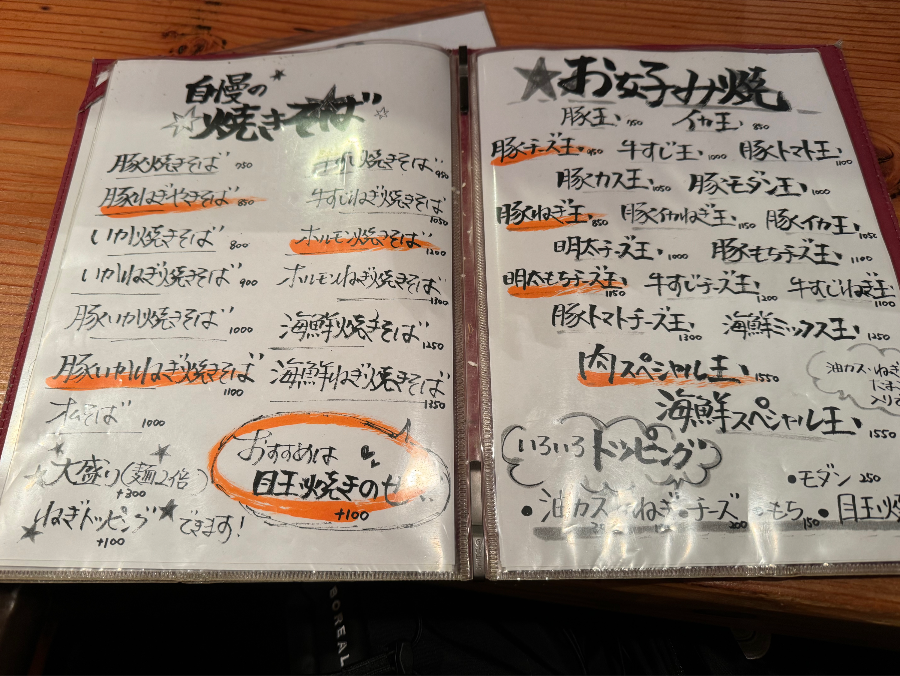 自慢の
焼きそば
豚焼きそば 750
豚ねぎやきそば 850
いか焼きそば 800
いかねぎ焼きそば 900
豚いか焼きそば 1000
豚いかねぎ焼きそば 1100
オムそば 1000
大盛り(麺2倍) +300
ねぎトッピング +100 できます!
焼きそば 950
牛すじねぎ焼きそば 1050
ホルモン焼きそば 1200
ホルモンねぎ焼きそば 1300
海鮮焼きそば 1250
海鮮ねぎ焼きそば 1350
おすすめは
目玉焼きのせ
+100
お好み焼
豚玉 750 イカ玉 850
豚チーズ玉 950 牛すじ玉 1000 豚トマト玉 1100
豚カス玉 1050 豚モダン玉 1000
豚ねぎ玉 850 豚イカねぎ玉 1150 豚イカ玉 1050
明太チーズ玉 1000 豚もちチーズ玉 1100
明太もちチーズ玉 1150 牛すじチーズ玉 1200 牛すじねぎ玉 1100
豚トマトチーズ玉 1300 海鮮ミックス玉 1250
肉スペシャル玉 1550
油カス・ねぎ
入り
海鮮スペシャル玉 1550
いろいろトッピング
•モダン 250
•油カス •ねぎ •チーズ 200 •もち 150 •目玉焼
BOREAL